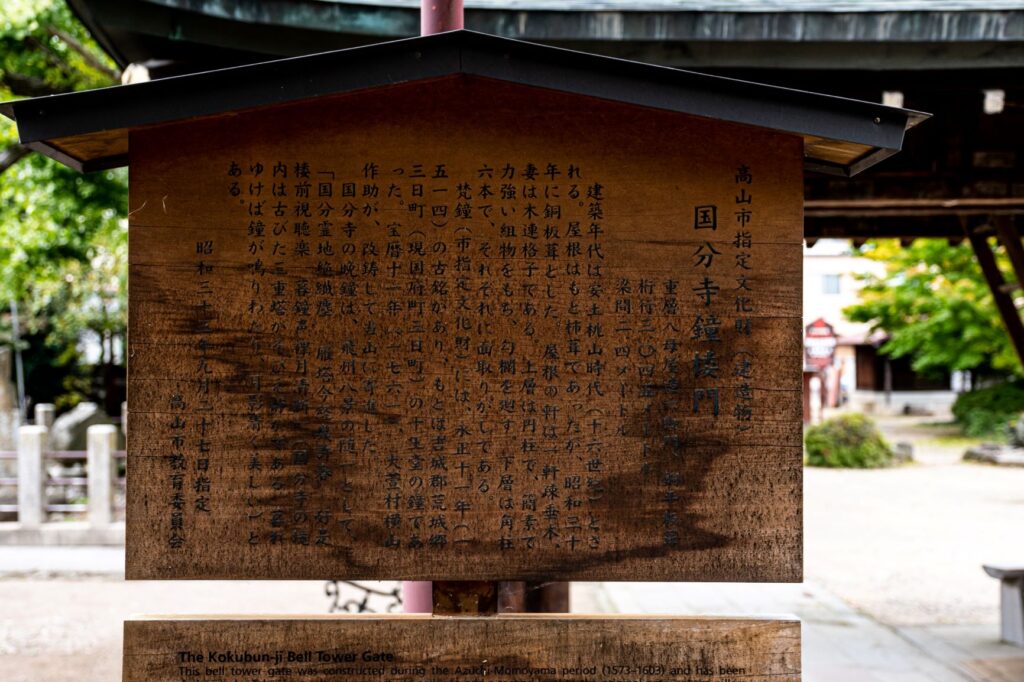 高山市指定文化財（建造物）
国分寺鐘楼門
重層八母屋造
桁行三、〇四メートル
梁間二、四メートル
建築年代は安土桃山時代（十六世紀）とさ
れる。屋根はもと柿葺であったが、昭和三十
年に銅板葺とした。屋根の軒は一軒疎垂木、
妻は木連格子である。上層は円柱で、簡素で
力強い組物をもち、勾欄を廻す。下層は角柱
六本で、それぞれに面取りがしてある。
梵鐘（市指定文化財）には、永正十一年（一
五一四）の古銘があり、もとは吉城郡荒城郷
三日町（現国府町三日町）の
の鐘であ
った。宝暦十一年（一七六一）、大萱村横山
作助が、改鋳して当山に寄進した。
国分寺の晩鐘は、飛驒八景の随一として、
「国分霊地絶繊塵
楼前視聴楽
内は古びた三重塔が
ゆけば鐘が鳴りわたり、
ある。
昭和三十
年九月二十七日指定
高山市教育委員会
The Kokubun-ji Bell Tower Gate
This bell tower gate was constructed during the Azuchi Momoyama period (1573-1603) and has been